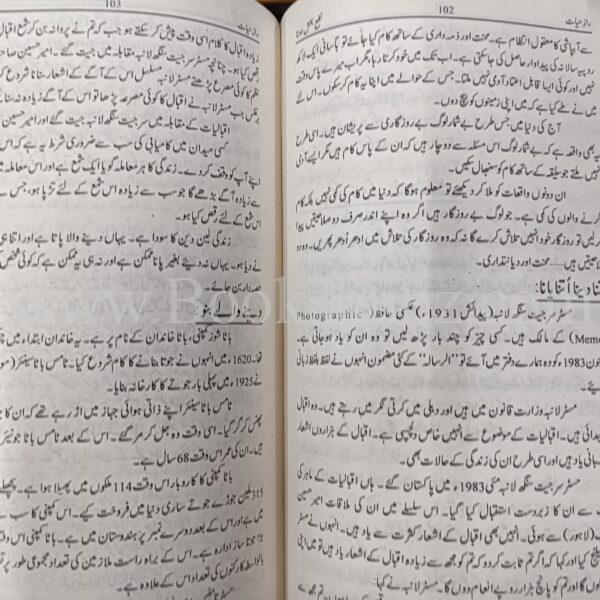 102
رازِ حیات
سے آبپاشی کا معقول انتظام ہے۔ محنت اور ذمہ داری کے ساتھ کام کیا جائے تو بآسانی ایک لاکھ
روپیہ سالانہ کی پیداوار حاصل کی جا سکتی ہے۔ اب تک میں خود کرتا رہا مگر اب میرے پاس وقت
نہیں اور کوئی ایسا قابل اعتماد آدمی نہیں ملتا۔ جس کے حوالے میں اپنا یہ کام کر سکوں۔ اس لئے
میں نے طے کیا ہے کہ میں اپنی زمینوں کو بیچ دوں۔
آج کی دنیا میں جس طرح بے شمار لوگ بے روزگاری سے پریشان ہیں۔ اسی طرح
یہ بھی واقعہ ہے کہ بے شمار لوگ اس مسئلہ سے دوچار ہیں کہ ان کے پاس کام ہیں مگر ایسے آدمی
نہیں ملتے جو سلیقہ کے ساتھ کام کو سنبھال سکیں۔
ان دونوں واقعات کو ملا کر دیکھئے تو معلوم ہوگا کہ دنیا میں کام کی کمی نہیں بلکہ کام
کرنے والوں کی کمی ہے۔ جو لوگ بے روزگار ہیں اگر وہ اپنے اندر صرف دو صلاحیتیں پیدا
کر لیں تو روزگار خود انہیں تلاش کرے گا نہ کہ وہ روزگار کی تلاش میں ادھر اُدھر پھریں۔ وہ دو
صلاحیتیں ہیں....... محنت اور دیانتداری۔
جتنا دینا اُتنا پانا:
مسٹر سرجیت سنگھ لانبہ (پیدائش 1931ء) عکسی حافظہ (Photographic
Memory) کے مالک ہیں۔ کسی چیز کو چند بار پڑھ لیں تو وہ ان کو یاد ہو جاتی ہے۔
جون 1983ء کو وہ ہمارے دفتر میں آئے تو "الرسالہ" کے کئی مضمون انہوں نے لفظ بلفظ زبانی
مسٹر لانبہ وزارت قانون میں ہیں اور دہلی میں کرتی نگر میں رہتے ہیں۔ وہ اقبال
شیدائی ہیں۔ اقبالیات کے موضوع سے انہیں خاص دلچسپی ہے۔ اقبال کے ہزاروں اشعار
زبانی یاد ہیں اور اسی طرح ان کی زندگی کے حالات بھی۔
مسٹر سرجیت سنگھ لانبہ مئی 1983ء میں پاکستان گئے۔ وہاں اقبالیات کے ماہر کی
سے ان کا زبردست استقبال کیا گیا۔ اس سلسلے میں ان کی ملاقات امیر حسین
(لاہور) سے ہوئی۔ انہیں بھی اقبال کے اشعار کثرت سے یاد ہیں۔ انہوں نے مسٹر
چیلنج کیا اور کہا کہ اگر تم ثابت کر دو کہ تم کو مجھ سے زیادہ اقبال کے اشعار یاد ہیں تو میں اپنی
گا اور تم کو پانچ ہزار روپے انعام دوں گا۔ مسٹر لانبہ نے کہا:
103
رازِ حیات
زیادہ اقبال کا کلام اسی وقت پیش کر سکتے ہو جب کہ تم نے پروانہ بن کر شمع اقبال
رقص کیا ہو۔ چنانچہ مسٹر سرجیت سنگھ لانبہ مقابلہ میں جیت گئے۔ امیر حسین صاحب
نظم کا کوئی مصرع پڑھتے مسٹر لانبہ مسلسل اس کے آگے کے اشعار سنانا شروع کر
برعکس جب مسٹر لانبہ نے اقبال کا کوئی مصرعہ پڑھا تو اس کے آگے زیادہ نہ بتا
اقبالیات کے مقابلہ میں سرجیت سنگھ لانبہ جیت گئے اور امیر حسین
کسی میدان میں کامیابی کی سب سے ضروری شرط یہ ہے کہ اس
اپنے آپ کو وقف کر دے۔ زندگی کا ہر معاملہ گویا ایک شمع ہے اور اس معاملہ میں
سے زیادہ آگے بڑھے گا جو سب سے زیادہ اس شمع کے لئے تڑپا ہو، جس نے
اس شمع کے لئے رقص کیا ہو۔
زندگی لین دین کا سودا ہے۔ یہاں دینے والا پاتا ہے اور اتنا ہی
نے دیا ہو۔ یہاں نہ دیئے بغیر پانا ممکن ہے اور نہ ہی یہ ممکن ہے کہ کوئی شخص
حصہ دار بن جائے۔
دینے والے بنو:
باٹا شوز کمپنی، باٹا خاندان کے نام پر ہے۔ یہ خاندان ابتداء میں
تھا۔ 1620ء میں انہوں نے جوتا بنانے کا کام شروع کیا۔ ٹامس باٹا سینئر (موجودہ
نے 1925ء میں پہلی بار جوتے کا کارخانہ بنایا۔
ٹامس باٹا سینئر اپنے ذاتی ہوائی جہاز میں اڑ رہے تھے کہ ان کا جہاز
پھنس کر گر گیا۔ اسی وقت وہ جل کر مر گئے۔ اس کے بعد ٹامس باٹا جونیئر
ہیں۔ ان کی عمر اس وقت 68 سال ہے۔
باٹا کمپنی کا کاروبار اس وقت 114 ملکوں میں پھیلا ہوا ہے۔ پچھلے
315 ملین جوڑے جوتے ساری دنیا میں فروخت کیے۔ اس کمپنی کا سب سے
میں ہے اور اس کے بعد دوسرے نمبر پر ہندوستان میں ہے۔ باٹا کمپنی اس وقت
بڑا جوتا ساز ادارہ ہے۔ اس کے براہ راست ملازمین کی تعداد مجموعی طور پر
بالواسطہ کارکنوں کی تعداد اس کے علاوہ ہے۔